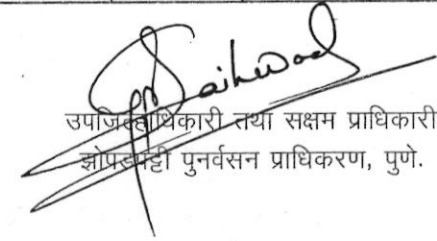 Gaikwad
उपजिल्हाधिकारी तथा सक्षम प्राधिकारी
झोपडपट्टी पुनर्वसन प्राधिकरण, पुणे.